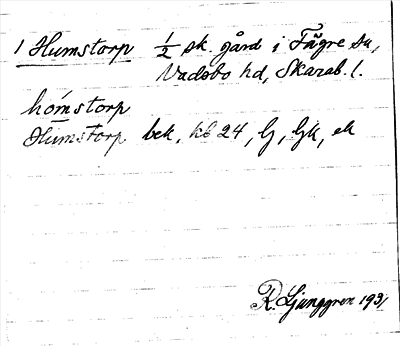 1 Humstorp ½ sk. gård i Fägre sn,
Vadsbo hd, Skarab. l.
hómstorp
Humstorp bek, kb 24, G, Gk, ek
R. Ljunggren 1931